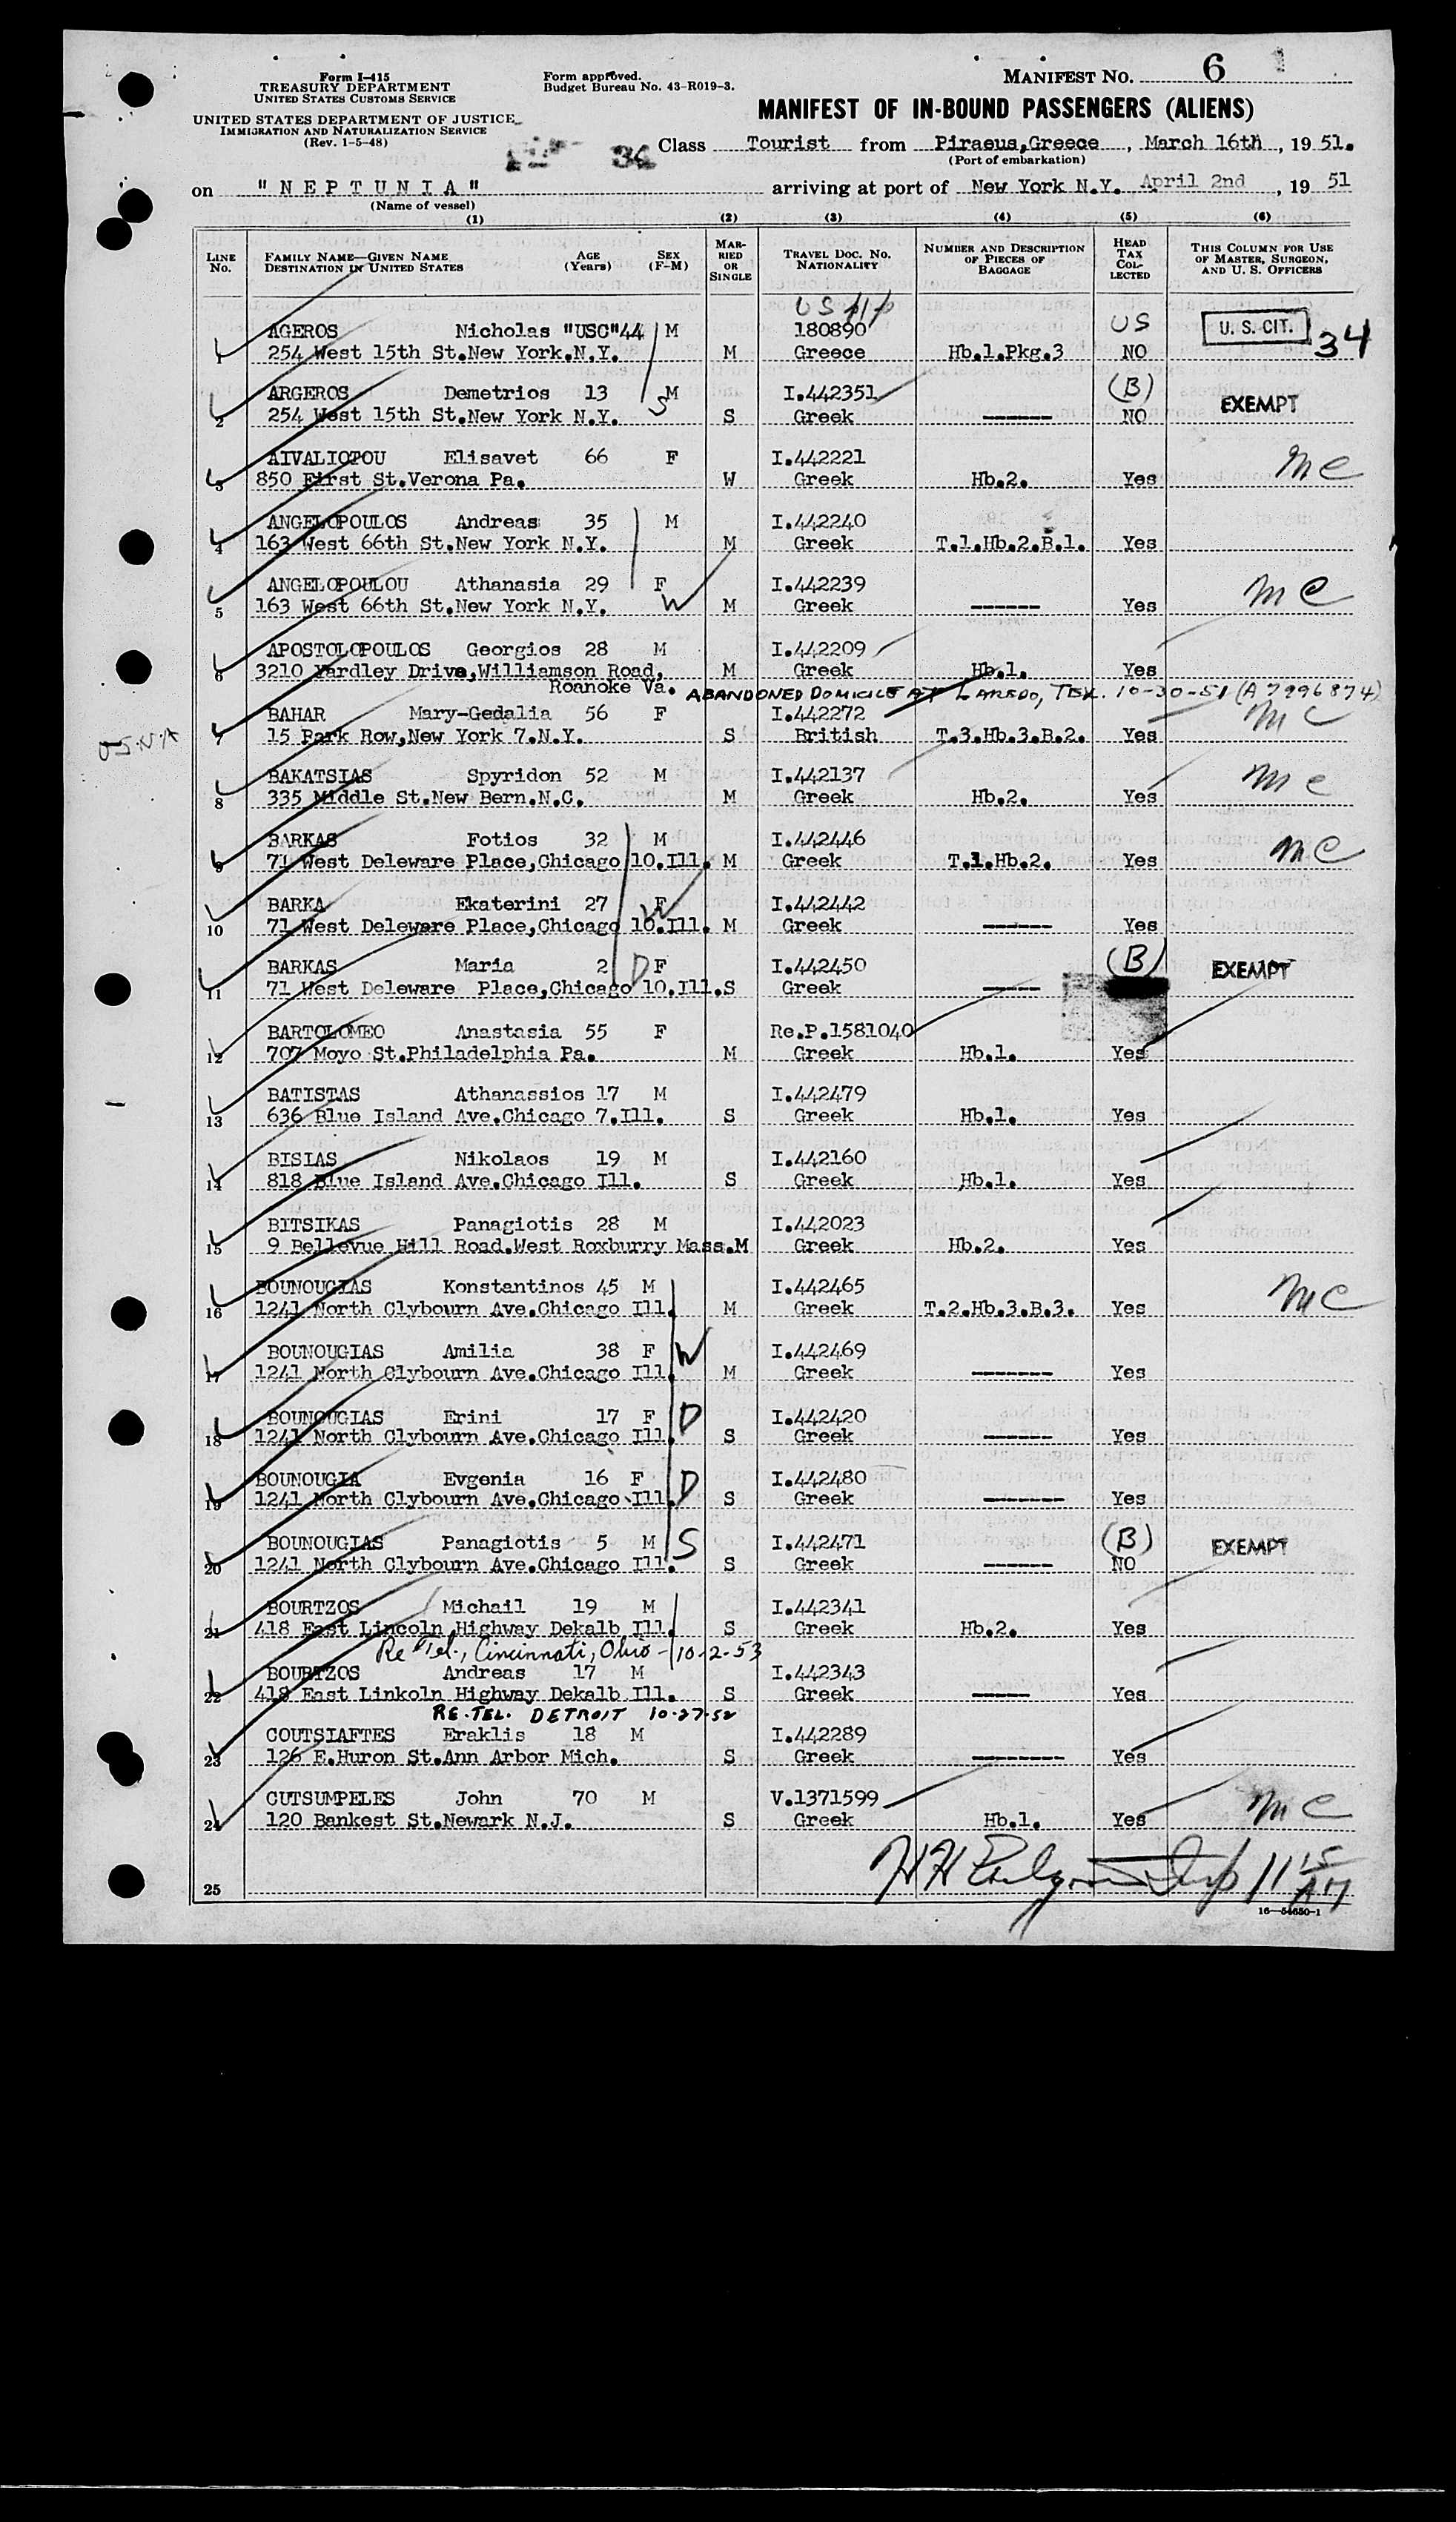 Form I-415
TREASURY DEPARTMENT
UNITED STATES CUSTOMS SERVICE
UNITED STATES DEPARTMENT OF JUSTICE
IMMIGRATION AND NATURALIZATION SERVICE
(Rev. 1-5-48)
Form approved.
Budget Bureau No. 43-R019-3.
MANIFEST NO. 6
MANIFEST OF IN-BOUND PASSENGERS (ALIENS)
Class Tourist from Piraeus,Greece, March 16th, 19 51.
(Port of embarkation)
on "NEPTUNIA" arriving at port of New York N.Y. April 2nd, 19 51
(Name of vessel)
(1) (2) (3) (4) (5) (6)
LINE NO. FAMILY NAME—GIVEN NAME DESTINATION IN UNITED STATES AGE (Years) SEX (F-M) MARRIED OR SINGLE TRAVEL DOC. NO. NATIONALITY NUMBER AND DESCRIPTION OF PIECES OF BAGGAGE HEAD TAX COLLECTED THIS COLUMN FOR USE OF MASTER, SURGEON, AND U. S. OFFICERS
US p/p
AGEROS Nicholas "USC" 44 M 180890 US U. S. CIT. 34
1 254 West 15th St.New York.N.Y. M Greece Hb.1.Pkg.3 NO
ARGEROS Demetrios 13 M I.442351 (B) EXEMPT
2 254 West 15th St.New York N.Y. S S Greek ------ NO
AIVALIOTOU Elisavet 66 F I.442221 mc
3 850 First St.Verona Pa. W Greek Hb.2. Yes
ANGELOPOULOS Andreas 35 M I.442240
4 163 West 66th St.New York N.Y. M Greek T.1.Hb.2.B.1. Yes
ANGELOPOULOU Athanasia 29 F I.442239 mc
5 163 West 66th St.New York N.Y. W M Greek ------ Yes
APOSTOLOPOULOS Georgios 28 M I.442209
6 3210 Yardley Drive,Williamson Road, M Greek Hb.1. Yes
Roanoke Va. ABANDONED DOMICILE AT LAREDO, TEX. 10-30-51 (A7996874)
BAHAR Mary-Gedalia 56 F I.442272 mc
7 15 Park Row,New York 7.N.Y. S British T.3.Hb.3.B.2. Yes
BAKATSIAS Spyridon 52 M I.442137 mc
8 335 Middle St.New Bern.N.C. M Greek Hb.2. Yes
BARKAS Fotios 32 M I.442446 mc
9 71 West Deleware Place,Chicago 10.Ill. M Greek T.1.Hb.2. Yes
BARKA Ekaterini 27 F W I.442442
10 71 West Deleware Place,Chicago 10.Ill. M Greek ------ Yes
BARKAS Maria 2 D F I.442450 (B) EXEMPT
11 71 West Deleware Place,Chicago 10.Ill.S Greek -----
BARTOLOMEO Anastasia 55 F Re.P.1581040
12 707 Moyo St.Philadelphia Pa. M Greek Hb.1. Yes
BATISTAS Athanassios 17 M I.442479
13 636 Blue Island Ave.Chicago 7.Ill. S Greek Hb.1. Yes
BISIAS Nikolaos 19 M I.442160
14 818 Blue Island Ave.Chicago Ill. S Greek Hb.1. Yes
BITSIKAS Panagiotis 28 M I.442023
15 9 Bellevue Hill Road.West Roxburry Mass.M Greek Hb.2. Yes
BOUNOUGIAS Konstantinos 45 M I.442465 mc
16 1241 North Clybourn Ave.Chicago Ill. M Greek T.2.Hb.3.B.3. Yes
BOUNOUGIAS Amilia 38 F W I.442469
17 1241 North Clybourn Ave.Chicago Ill. M Greek ------- Yes
BOUNOUGIAS Erini 17 F D I.442420
18 1241 North Clybourn Ave.Chicago Ill. S Greek ------ Yes
BOUNOUGIA Evgenia 16 F D I.442480
19 1241 North Clybourn Ave.Chicago Ill. S Greek ------- Yes
BOUNOUGIAS Panagiotis 5 M S I.442471 (B) EXEMPT
20 1241 North Clybourn Ave.Chicago Ill. S Greek ------ NO
BOURTZOS Michail 19 M I.442341
21 418 East Lincoln Highway Dekalb Ill. S Greek Hb.2. Yes
Re Tel., Cincinnati, Ohio - 10-2-53
BOURTZOS Andreas 17 M I.442343
22 418 East Linkoln Highway Dekalb Ill. S Greek ----- Yes
RE-TEL. DETROIT 10-27-52
COUTSIAFTES Eraklis 18 M I.442289
23 126 E.Huron St.Ann Arbor Mich. S Greek -------- Yes
CUTSUMPELES John 70 M V.1371599 mc
24 120 Bankest St.Newark N.J. S Greek Hb.1. Yes
25
11 15 AM
16—54650-1